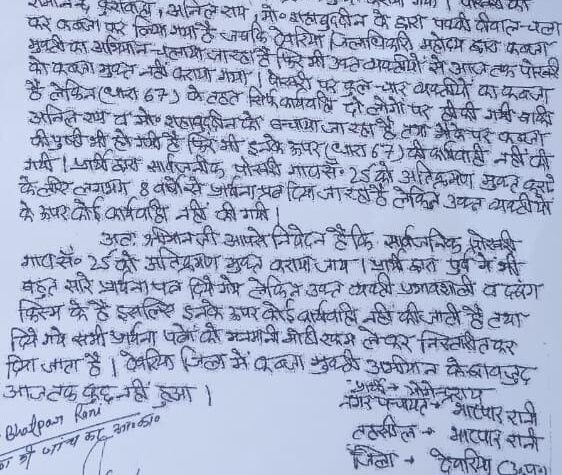 कर कब्जा कर लिया गया है जबकि देवरिया जिलाधिकारी महोदय द्वारा कब्जा
मुक्ती का अभियान चलाया जा रहा है फिर भी उक्त व्यक्तीयों से आज तक पोखरी
को कब्जा मुक्त नहीं कराया गया। पोखरी पर कुल चार व्यक्तीयों का कब्जा
है लेकिन (धारा 67) के तहत सिर्फ कार्यवाही दो लोगों पर ही की गयी बाकी
अनिल राय व मो० शहाबुद्दीन को बचाया जा रहा है तथा मौके पर कब्जा
की पुष्टी भी हो गयी है फिर भी इनके ऊपर (धारा 67) की कार्यवाही नहीं की
गयी। प्रार्थी द्वारा सार्वजनीक पोखरी गाटा सं० 25 को अतिक्रमण मुक्त कराने
के लिए लगभग 8 वर्षों से प्रार्थना पत्र दिया जा रहा है लेकिन उक्त व्यक्तीयों
के ऊपर कोई कार्यवाही नहीं की गयी।
अतः श्रीमान जी आपसे निवेदन है कि सार्वजनिक पोखरी
गाटा सं० 25 को अतिक्रमण मुक्त कराया जाय। प्रार्थी द्वारा पूर्व में भी
बहुत सारे प्रार्थना पत्र दिये गये लेकिन उक्त व्यक्ती प्रभावशाली व दबंग
किस्म के है इसलिए इनके ऊपर कोई कार्यवाही नहीं की जाती है तथा
दिये गये सभी प्रार्थना पत्रों को मनमानी मोटी रकम लेकर निस्तारित कर
दिया जाता है। देवरिया जिला में कब्जा मुक्ती अभीयान के बावजूद
आज तक कुछ नहीं हुआ।
प्रार्थी → योगेन्द्र राय
नगर पंचायत → भाटपार रानी
तहसील → भाटपार रानी
जिला → देवरिया
Bhatpar Rani